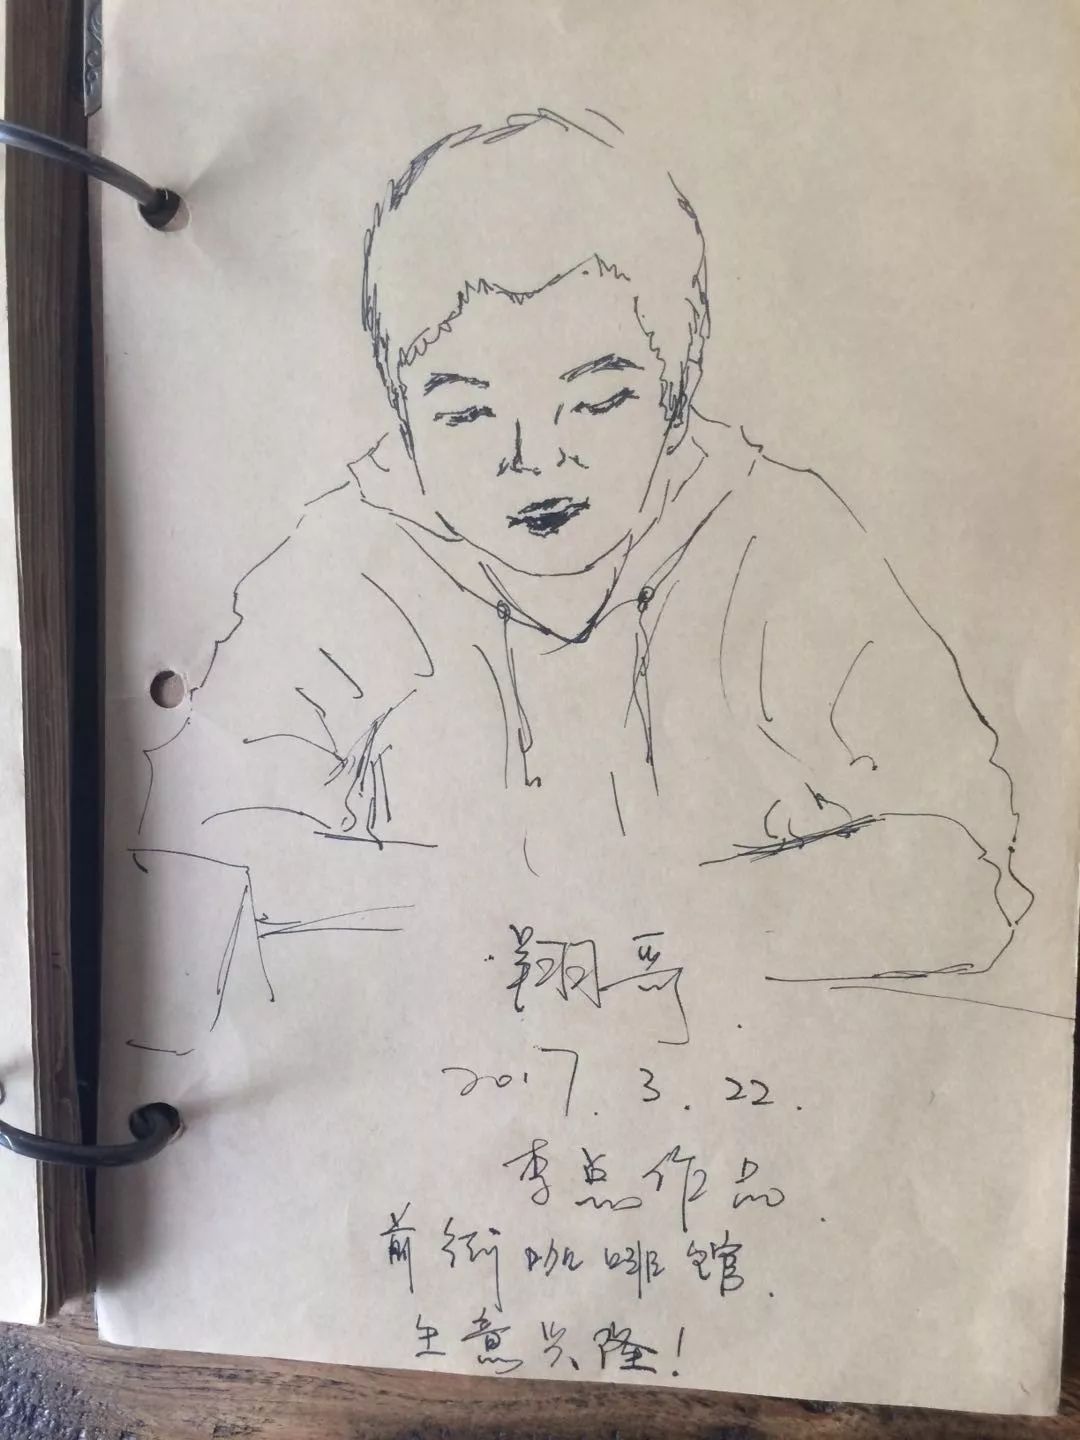 翔哥.
2017.3.22.
李总作品.
前街咖啡馆.
生意兴隆!